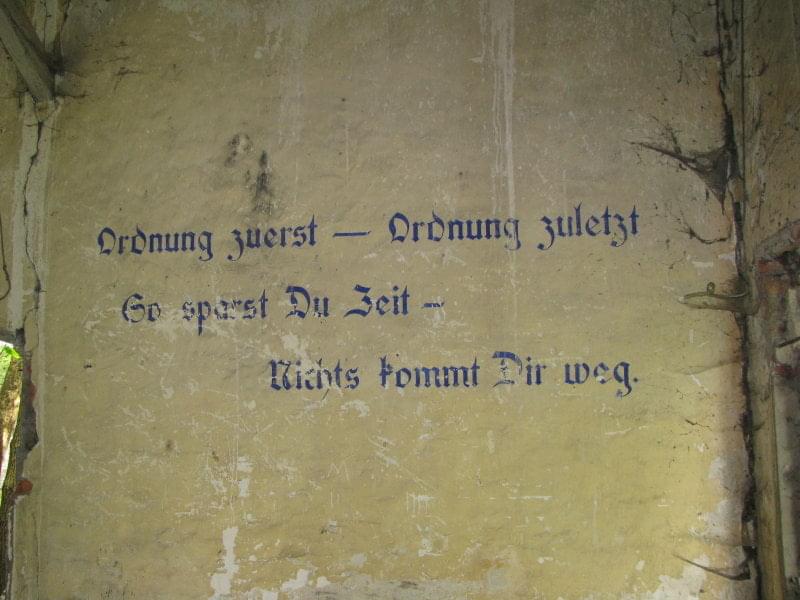 Ordnung zuerst — Ordnung zuletzt
So sparst Du Zeit –
Nichts kommt Dir weg.